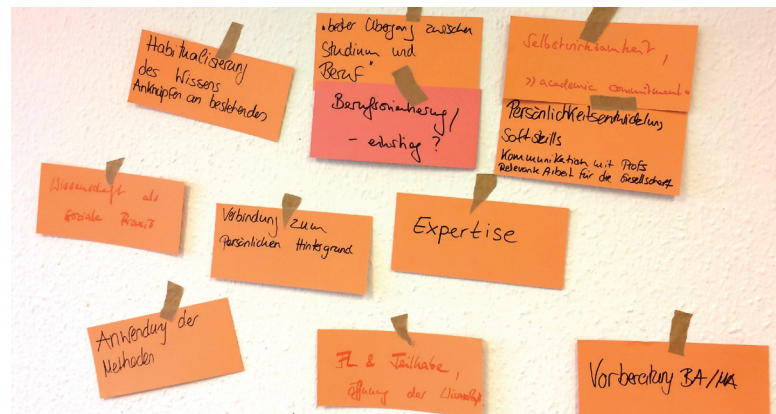 Habitualisierung
des Wissens
Anknüpfen an bestehendes
"bester Übergang zwischen
Studium und
Beruf"
Berufsorientierung/
- einstieg?
Selbstwirksamkeit,
"academic commitment"
Persönlichkeitsentwicklung
Softskills
Kommunikation mit Profs
Relevante Arbeit für die Gesellschaft
Wissenschaft als
soziale Praxis
Verbindung zum
Persönlichen Hintergrund
Expertise
Anwendung der
Methoden
FL & Teilhabe,
Öffnung der
Vorberatung BA/MA